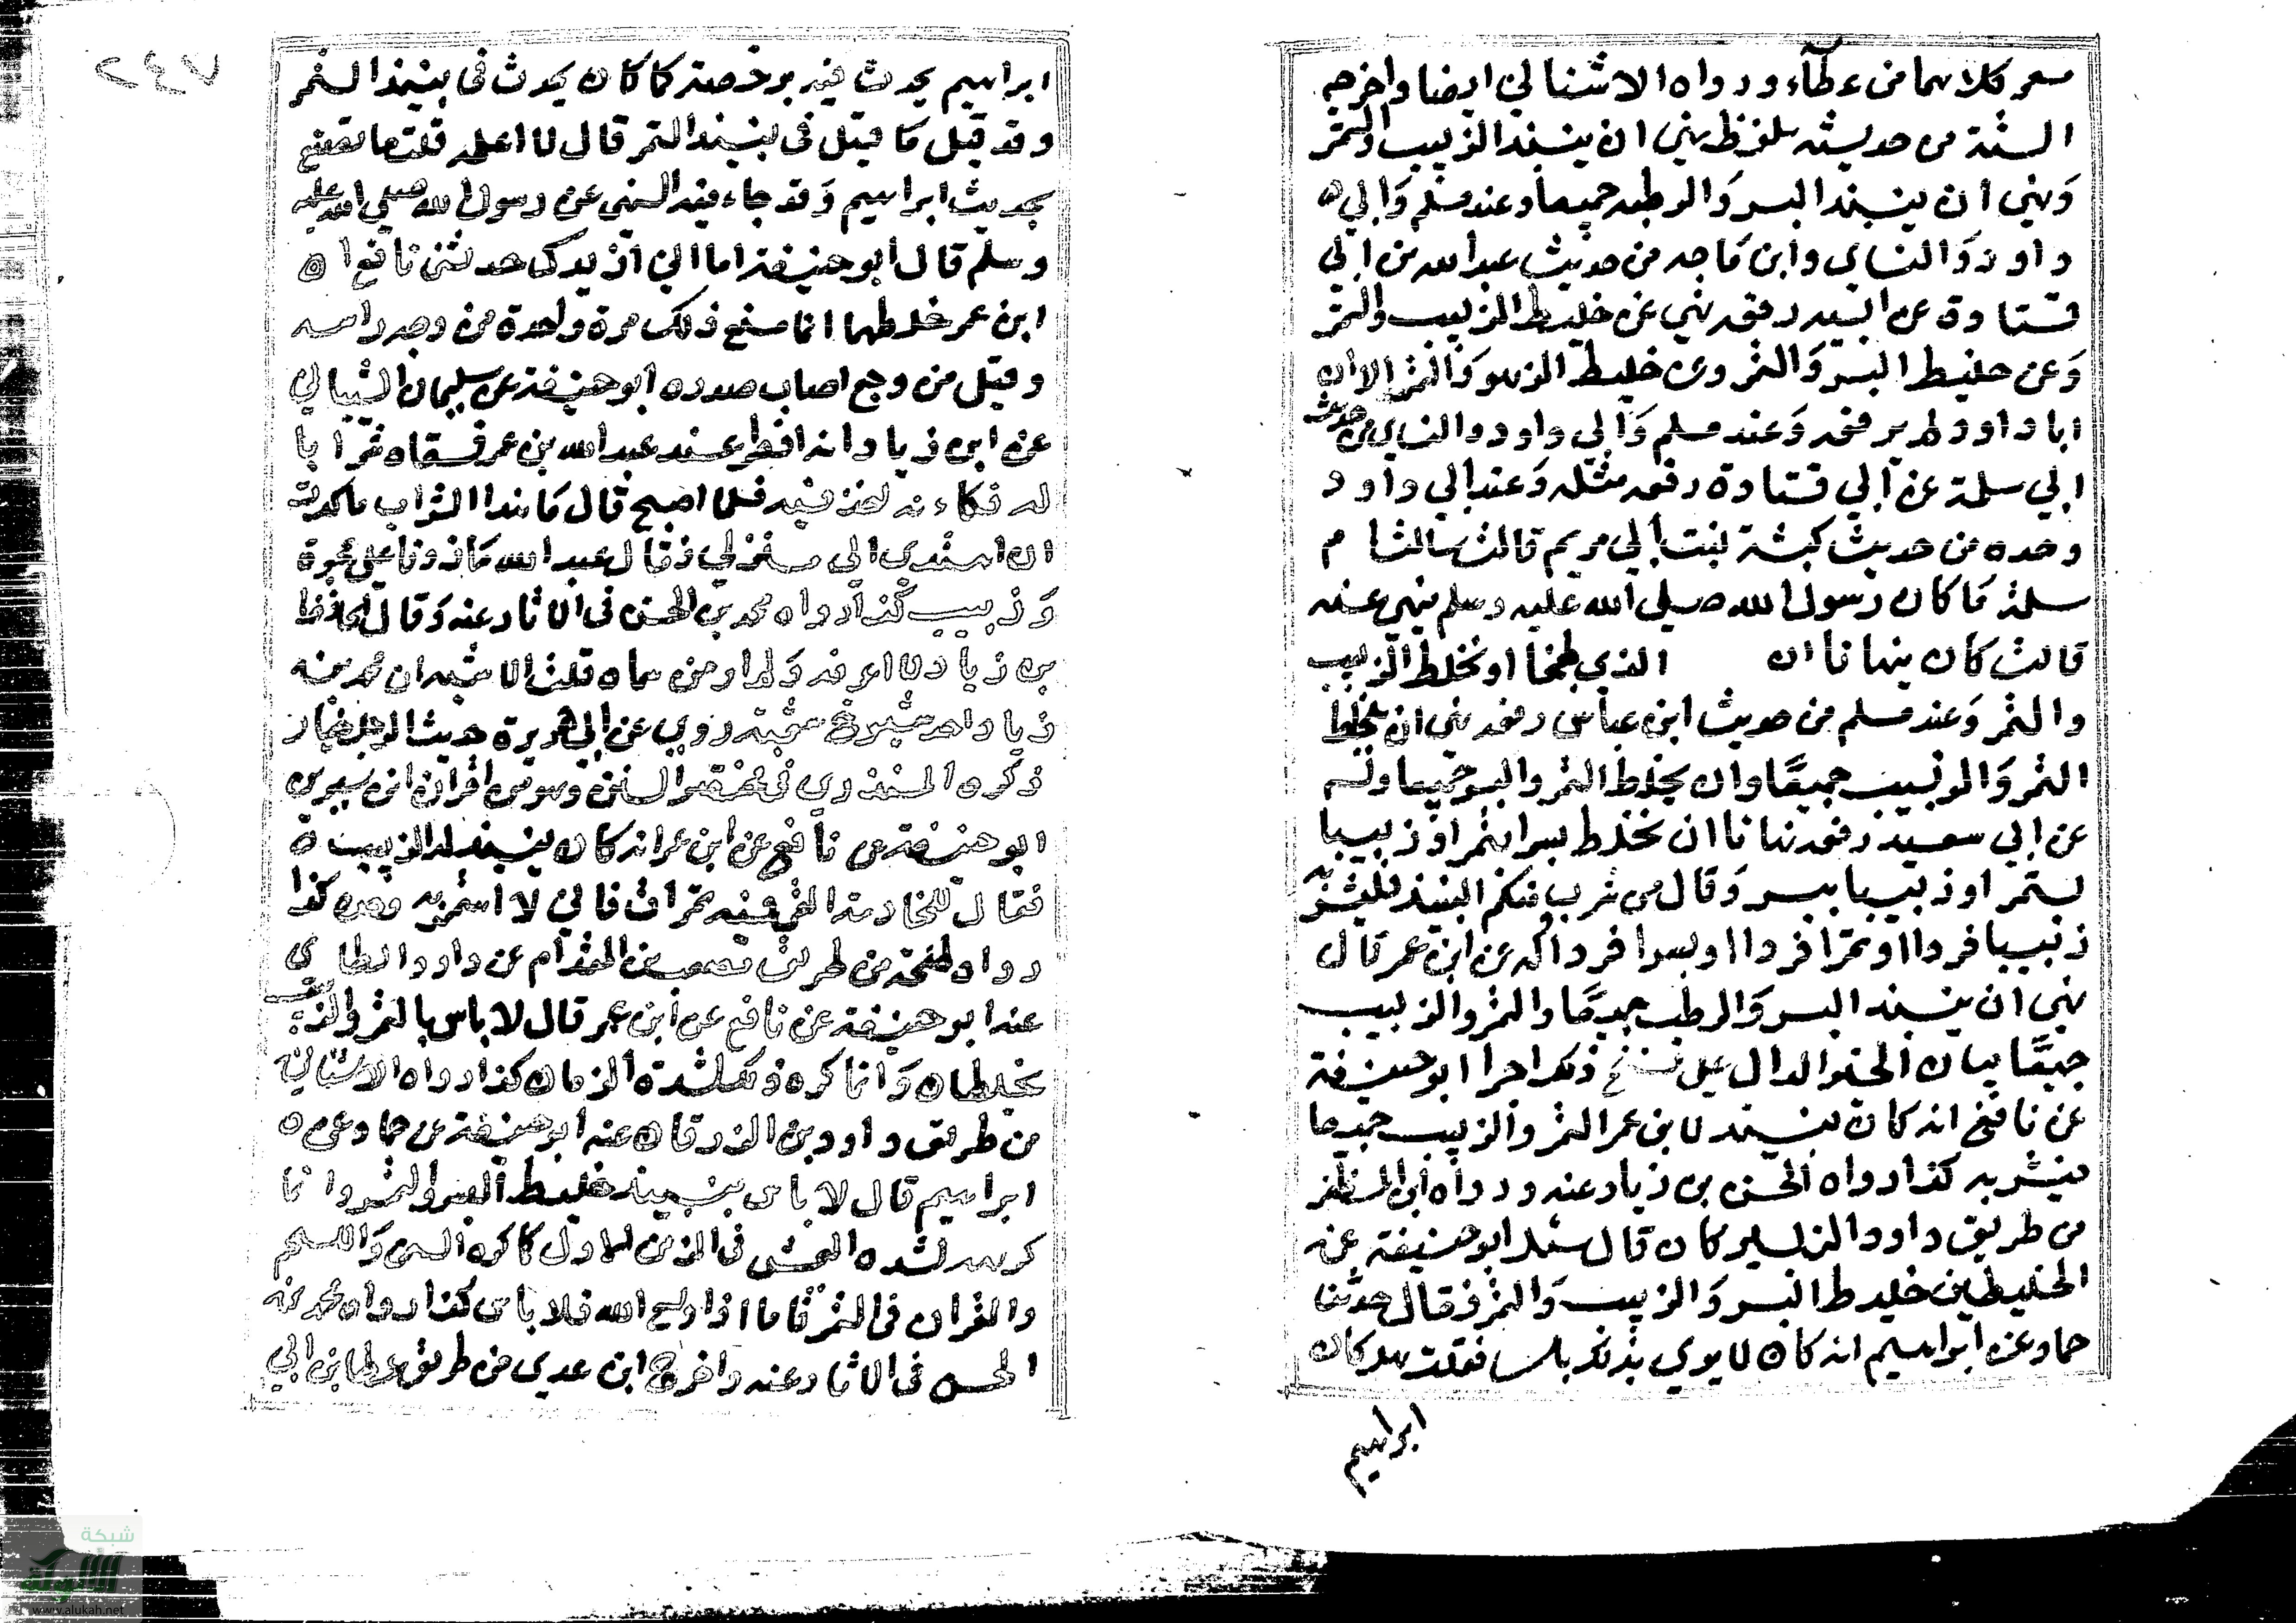 مسعر كلاهما من عطآء ورواه الاشناني ايضا واخرجه
الستة من حديثه بلفظ نهي ان ينبذ الزبيب والتمر
وَنهي ان ينبذ البسر وَالرطب جميعا وعند مسلم وَابي
داود وَالنساي وابن ماجه من حديث عبد الله بن ابي
قتادة عن ابيه رفعه نهي عن خليط الزبيب والتمر
وَعن خليط البسر وَالتمر وعن خليط الزهو وَالتمر الا ان
ابا داود لم يرفعه وَعند مسلم وَابي داود والنساي من حديث
ابي سلمة عن ابي قتادة رفعه مثله وَعند ابي داود
وحده من حديث كبشة بنت ابي مريم قالت سالت ام
سلمة مَا كان رسول الله صلي الله عليه وسلم ينهي عنه
قالت كان ينهانا ان الذي طبخا او نخلط الزبيب
والتمر وَعند مسلم من حديث ابن عباس رفعه نهي ان يخلط
التمر وَالزبيب جميعًا وان يخلط التمر والبسر جميعا
عن ابي سعيد رفعه نهانا ان نخلط بسرا بتمر او زبيبا
بتمر او زبيبا ببسر وَقال من شرب منكم النبيذ فليشربه
زبيبا فردا او تمرا فردا او بسرا فردا وله عن ابن عمر قال
نهي ان ينبذ البسر وَالرطب جميعًا والتمر والزبيب
جميعًا بيان الخبر الدال علي نسخ ذلك ابو حنيفة
عن نافع انه كان ينبذ لابن عمر التمر والزبيب جميعا
فيشربه كذا رواه الحسن بن زياد عنه ورواه ابن المظفر
من طريق داود الزبيركان قال سئل ابو حنيفة عن
الخليطين خليط البسر وَالزبيب وَالتمر فقال حدثنا
حماد عن ابراهيم انه كان لا يري بذلك باسا فقلت هل كان
ابراهيم
ابراهيم يحدث فيه برخصة كما كان يحدث في نبيذ التمر
وقد قيل مَا قيل في نبيذ التمر قال لا اعلم قلت ما تصنع
بحديث ابراهيم وَقد جاء فيه النهي عن رسول الله صلي الله عليه
وسلم قال ابو حنيفة اما اني ازيدك حدثني نافع ان
ابن عمر خلطهما انما صنع ذلك مرة واحدة من وجع راسه
وقيل من وجع اصاب صدره ابو حنيفة عن سليمان الشيباني
عن ابن زياد انه افطر عند عبد الله بن عمر فسقاه شرابا
له فكانه اخذ فيه فلما اصبح قال مَا هذا الشراب ما كدت
ان اهتدي الي منزلي فقال عبد الله مَا زدنا علي عجوة
وَزبيب كذا رواه محمد بن الحسن في الاثار عنه وَقال الحافظ
بن زياد لا اعرفه وَلم ار من سماه قلت الاشبه ان محمد بن
زياد احد شيوخ شعبة روي عن ابي هريرة حديث الرجل جبار
ذكره المنذري في مختصر السنن وهو من اقران ابن سيرين
ابو حنيفة عن نافع عن ابن عمر انه كان ينبذ له الزبيب
فقال للخادمة القي فيه تمرات فاني لا استمريه وحده كذا
رواه طلحة من طريق مصعب بن المقدام عن داود الطاي
عنه ابو حنيفة عن نافع عن ابن عمر قال لا باس بالتمر والزبيب
يخلطان وَانما كره ذلك لشدة الزمان كذا رواه الاشناني
من طريق داود بن الزبرقان عنه ابو حنيفة عن حماد عن
ابراهيم قال لا باس بنبيذ خليط البسر والتمر وانما
كرهه لشدة العيش في الزمن الاول كما كره السمن وَاللحم
والقران في التمر فاما اذا وسع الله فلا باس كذا رواه محمد بن
الحسن في الاثار عنه واخرج ابن عدي من طريق عطا بن ابي
شبكة
الألوكة
www.alukah.net